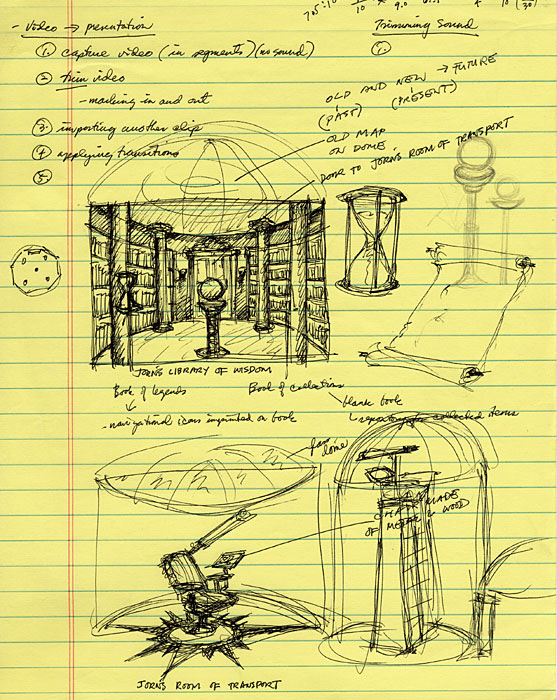 - Video → presentation
Trimming Sound
① capture video (in segments) (no sound)
①
② trim video
- marking in and out
③ importing another clip
④ applying transitions
⑤
OLD AND NEW → FUTURE
(PAST) (PRESENT)
OLD MAP
ON DOME
DOOR TO JORN'S ROOM OF TRANSPORT
JORN'S LIBRARY OF WISDOM
Book of legends
Book of collections
- navigational icons imprinted on book
blank book
repository for collected items
dome
CHAIR MADE
OF METAL & WOOD
JORN'S ROOM OF TRANSPORT